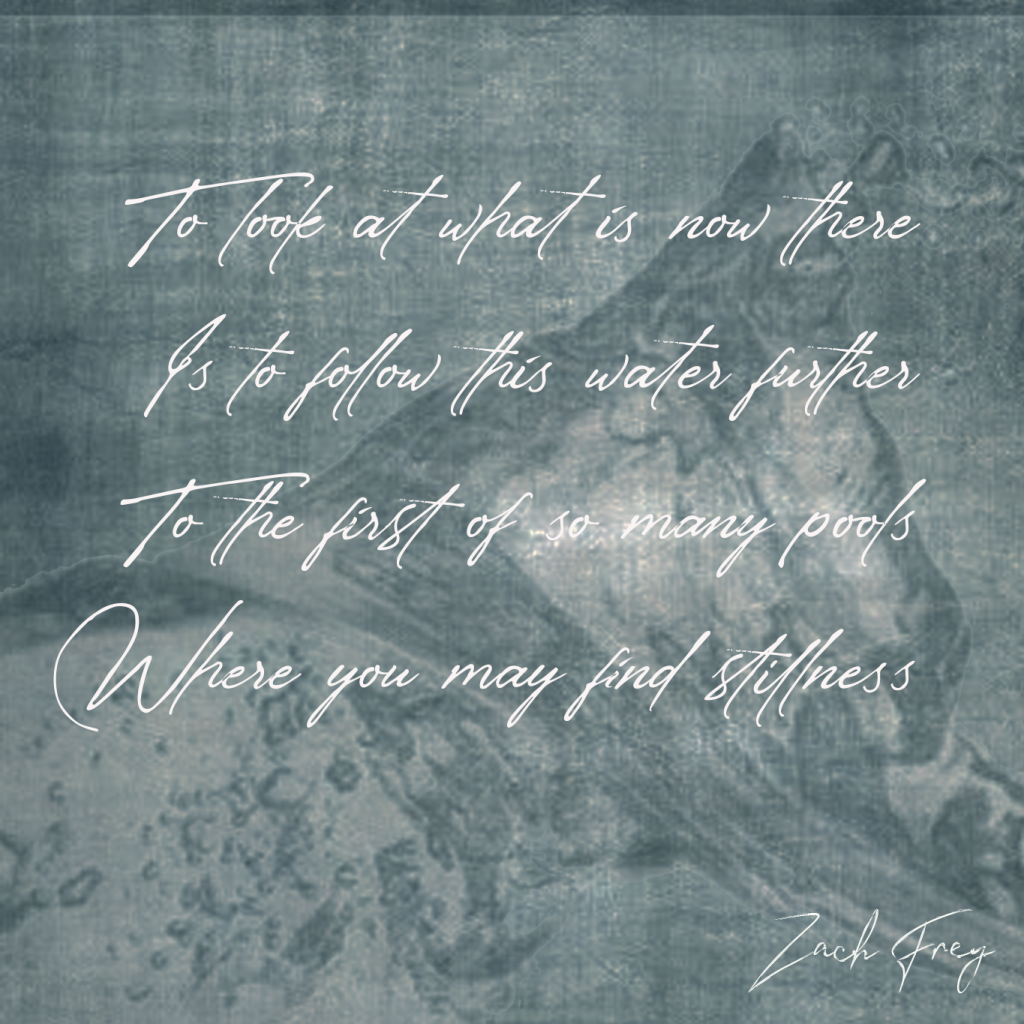 To look at what is now there
Is to follow this water further
To the first of so many pools
Where you may find stillness
Zach Frey